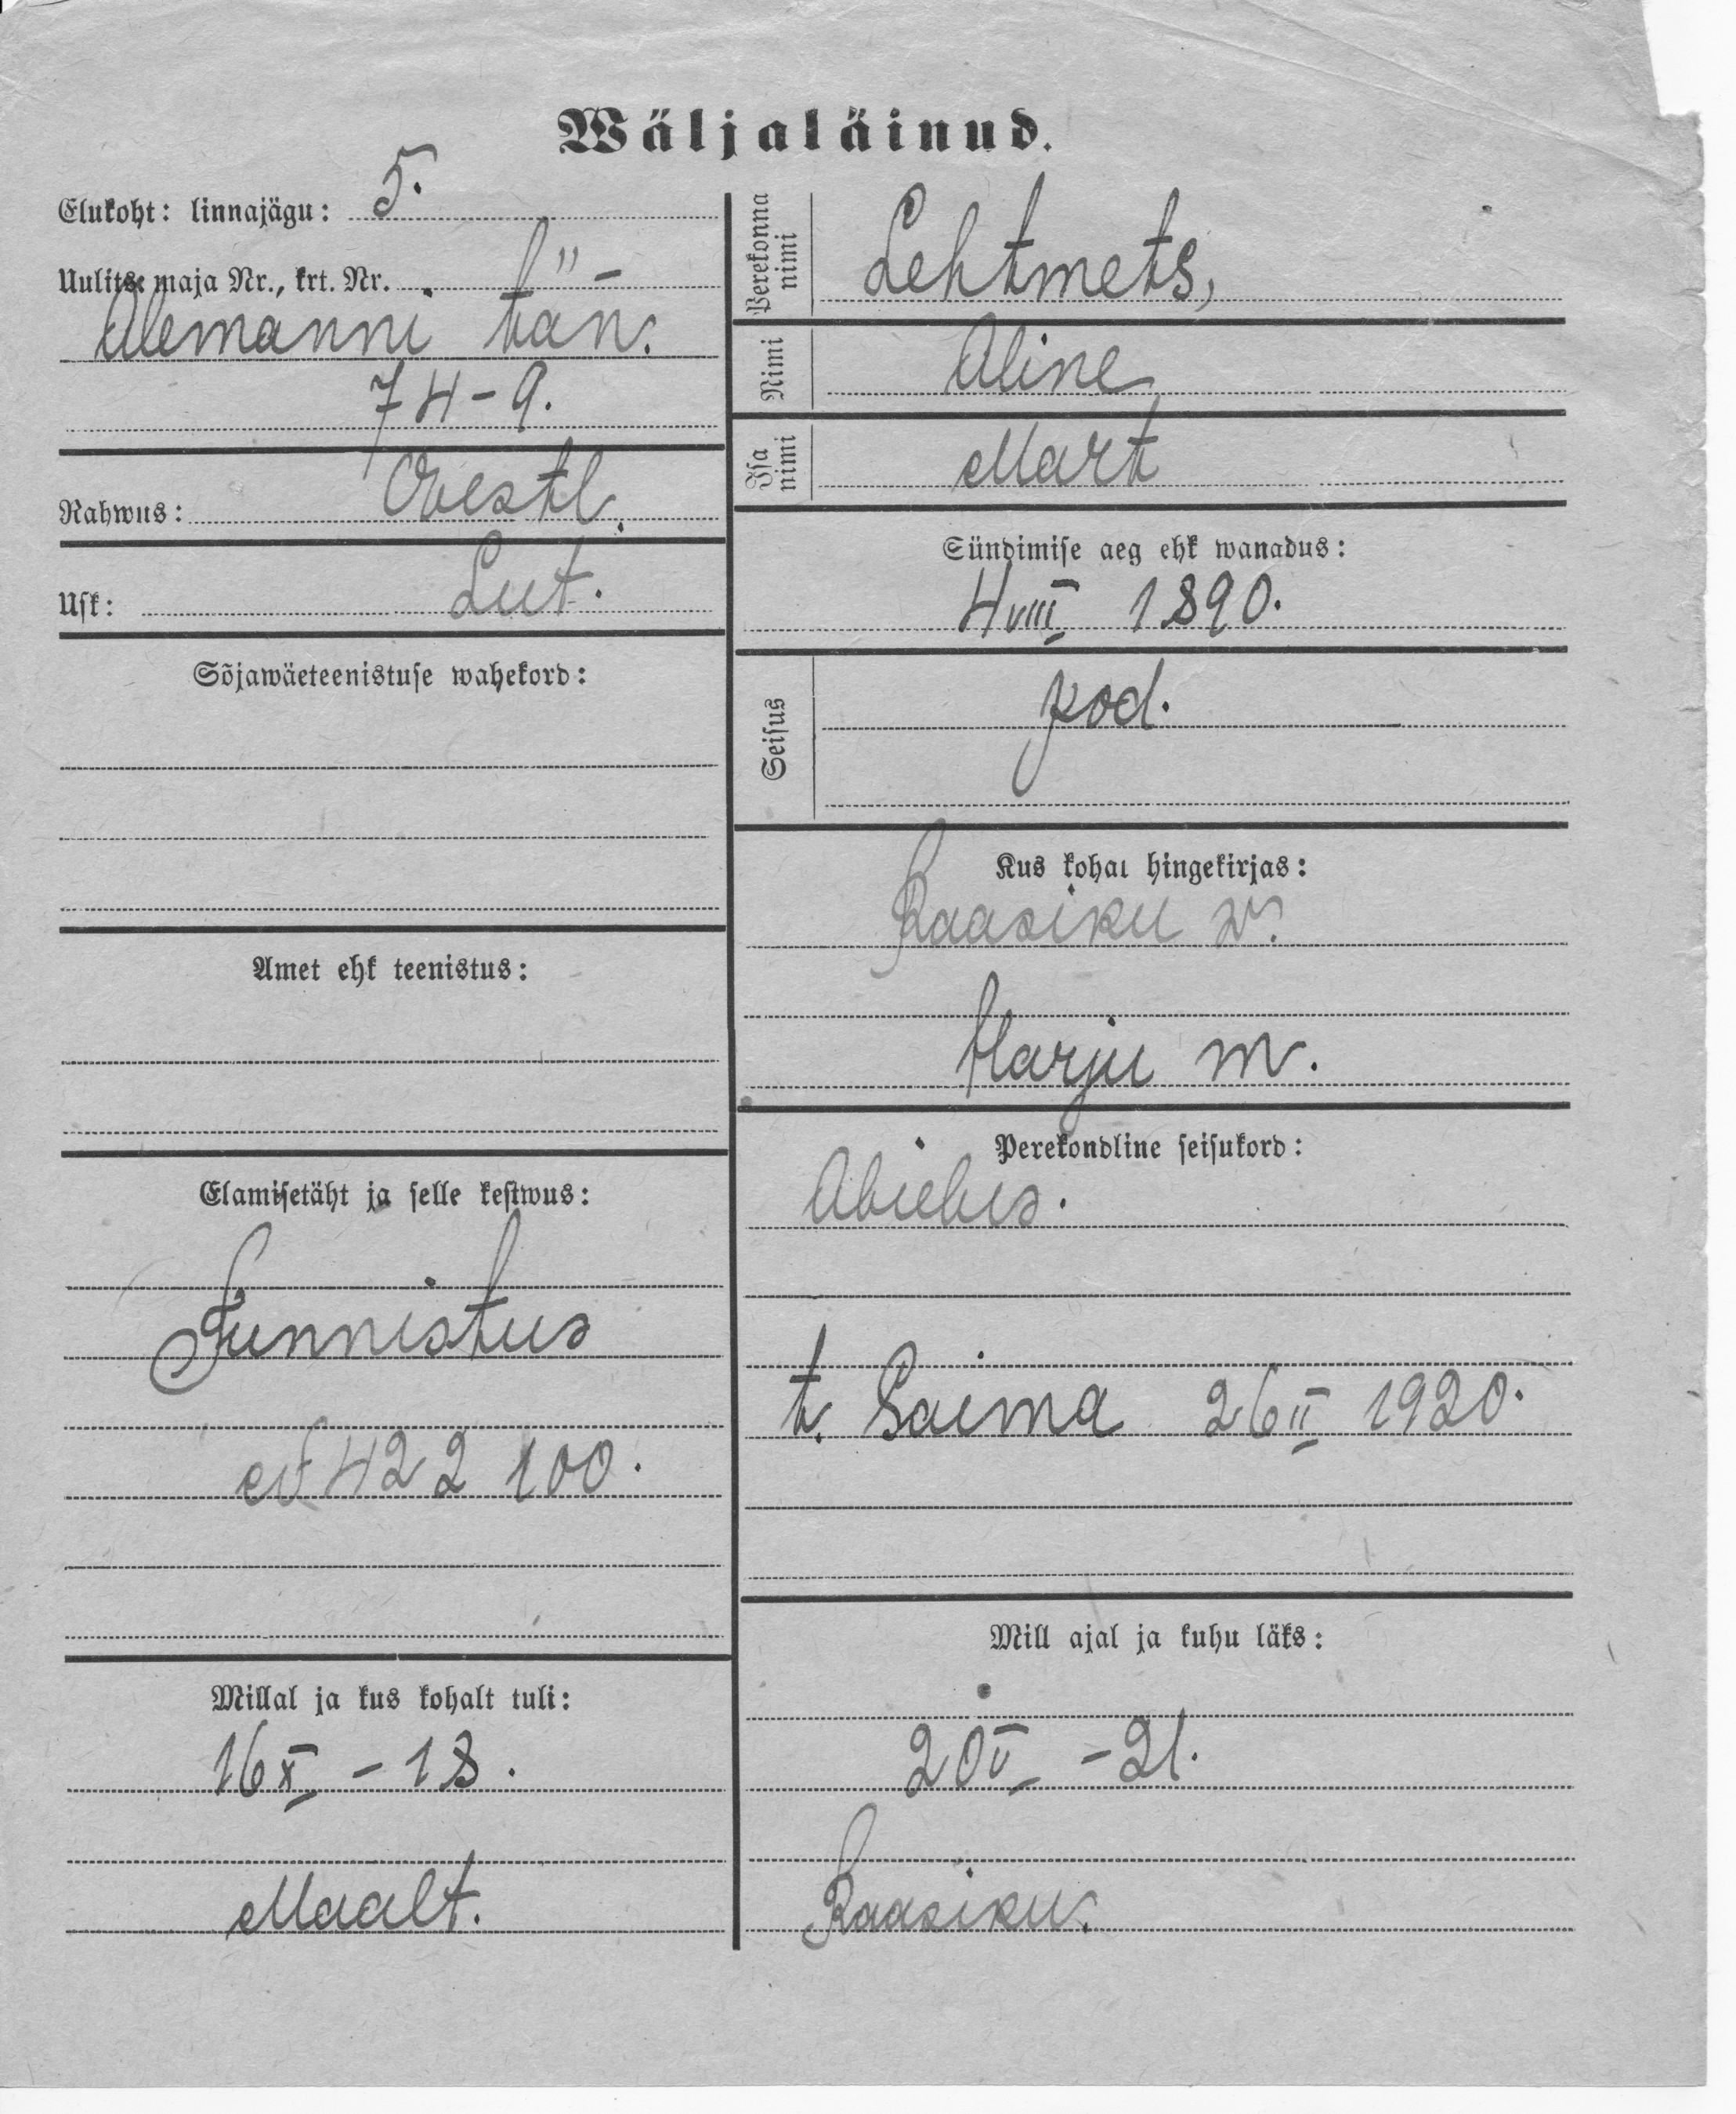 Wäljaläinud.
Elukoht: linnajägu: 5.
Uulits maja Nr., krt. Nr.
Alemanni tän.
74-9.
Rahwus: Eestl.
Usk: Lut.
Sõjawäeteenistuse wahekord:
Amet ehk teenistus:
Elamisetäht ja selle kestwus:
Tunnistus
422 100.
Millal ja kus kohalt tuli:
16 X - 18.
Maalt.
Perekonna nimi Lehtmets,
Nimi Aline
Isa nimi Mart
Sündimise aeg ehk wanadus:
4 VIII 1890.
Seisus kod.
Kus kohal hingekirjas:
Raasiku w.
Harju m.
Perekondline seisukord:
Abielus.
t. Saima 26 II 1920.
Mill ajal ja kuhu läks:
20 V - 21.
Raasiku.